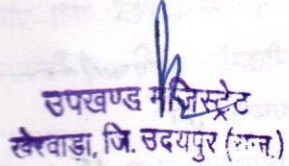 उपखण्ड मजिस्ट्रेट
खेरवाड़ा, जि. उदयपुर (राज.)